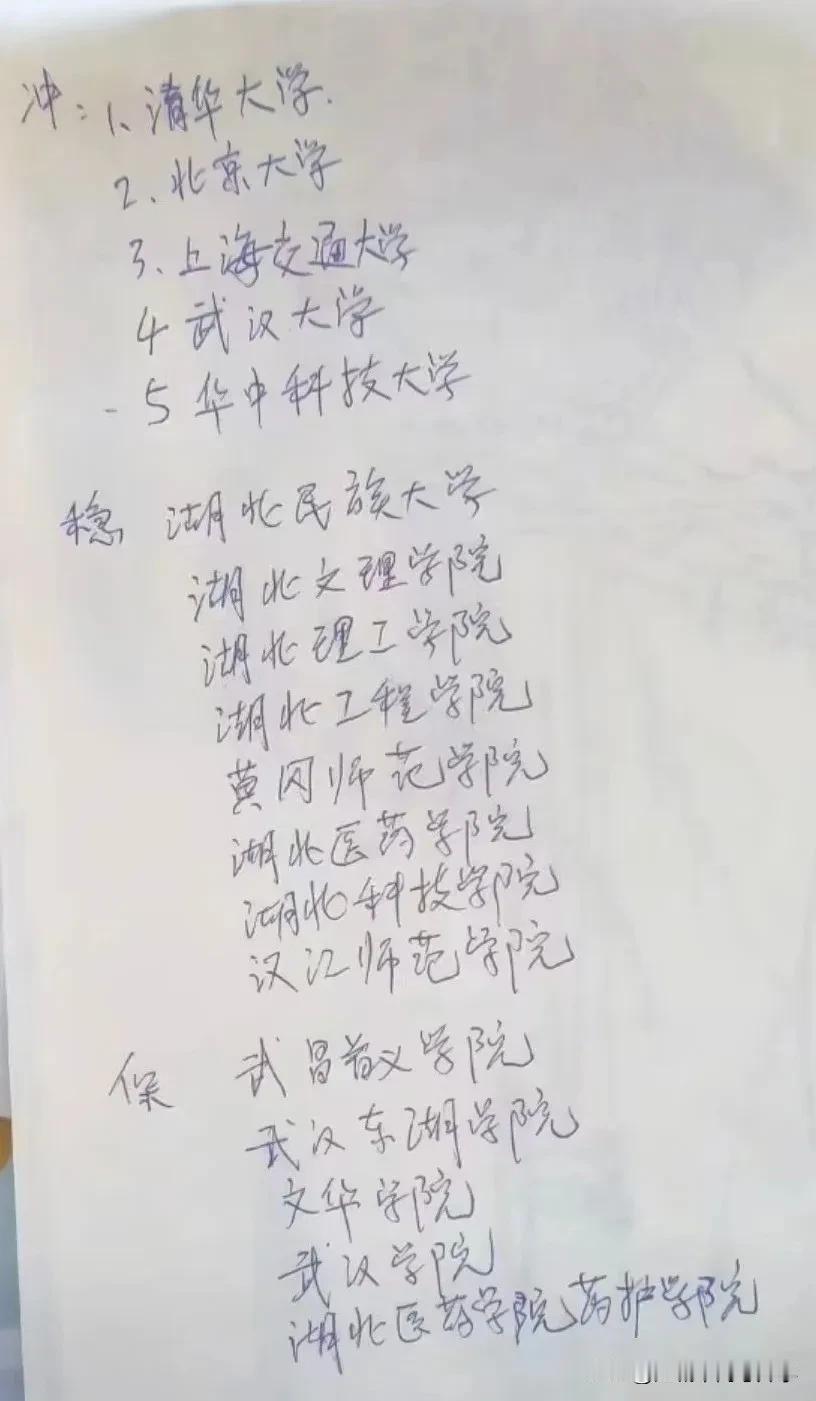 冲：1、清华大学.
2、北京大学
3、上海交通大学
4 武汉大学
-5 华中科技大学
稳 湖北民族大学
湖北文理学院
湖北理工学院
湖北工程学院
黄冈师范学院
湖北医药学院
湖北科技学院
汉江师范学院
保 武昌首义学院
武汉东湖学院
文华学院
武汉学院
湖北医药学院药护学院